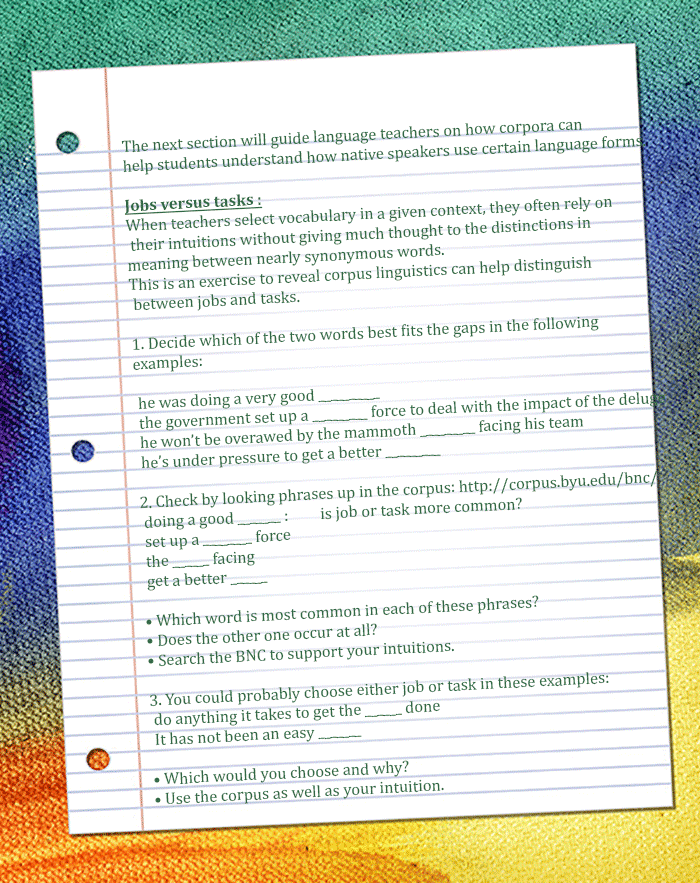 The next section will guide language teachers on how corpora can
help students understand how native speakers use certain language forms.
Jobs versus tasks :
When teachers select vocabulary in a given context, they often rely on
their intuitions without giving much thought to the distinctions in
meaning between nearly synonymous words.
This is an exercise to reveal corpus linguistics can help distinguish
between jobs and tasks.
1. Decide which of the two words best fits the gaps in the following
examples:
he was doing a very good ________
the government set up a _______ force to deal with the impact of the
he won't be overawed by the mammoth _______ facing his team
he's under pressure to get a better _______
2. Check by looking phrases up in the corpus: http://corpus.byu.edu/bnc/
doing a good ______ : is job or task more common?
set up a _______ force
the _____ facing
get a better _____
• Which word is most common in each of these phrases?
• Does the other one occur at all?
• Search the BNC to support your intuitions.
3. You could probably choose either job or task in these examples:
do anything it takes to get the _____ done
It has not been an easy ______
• Which would you choose and why?
• Use the corpus as well as your intuition.